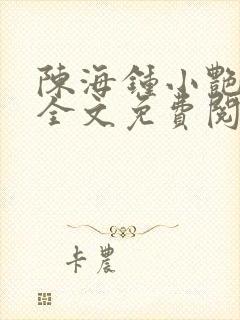 陳海鍾小艷
全文免費閱
卡農